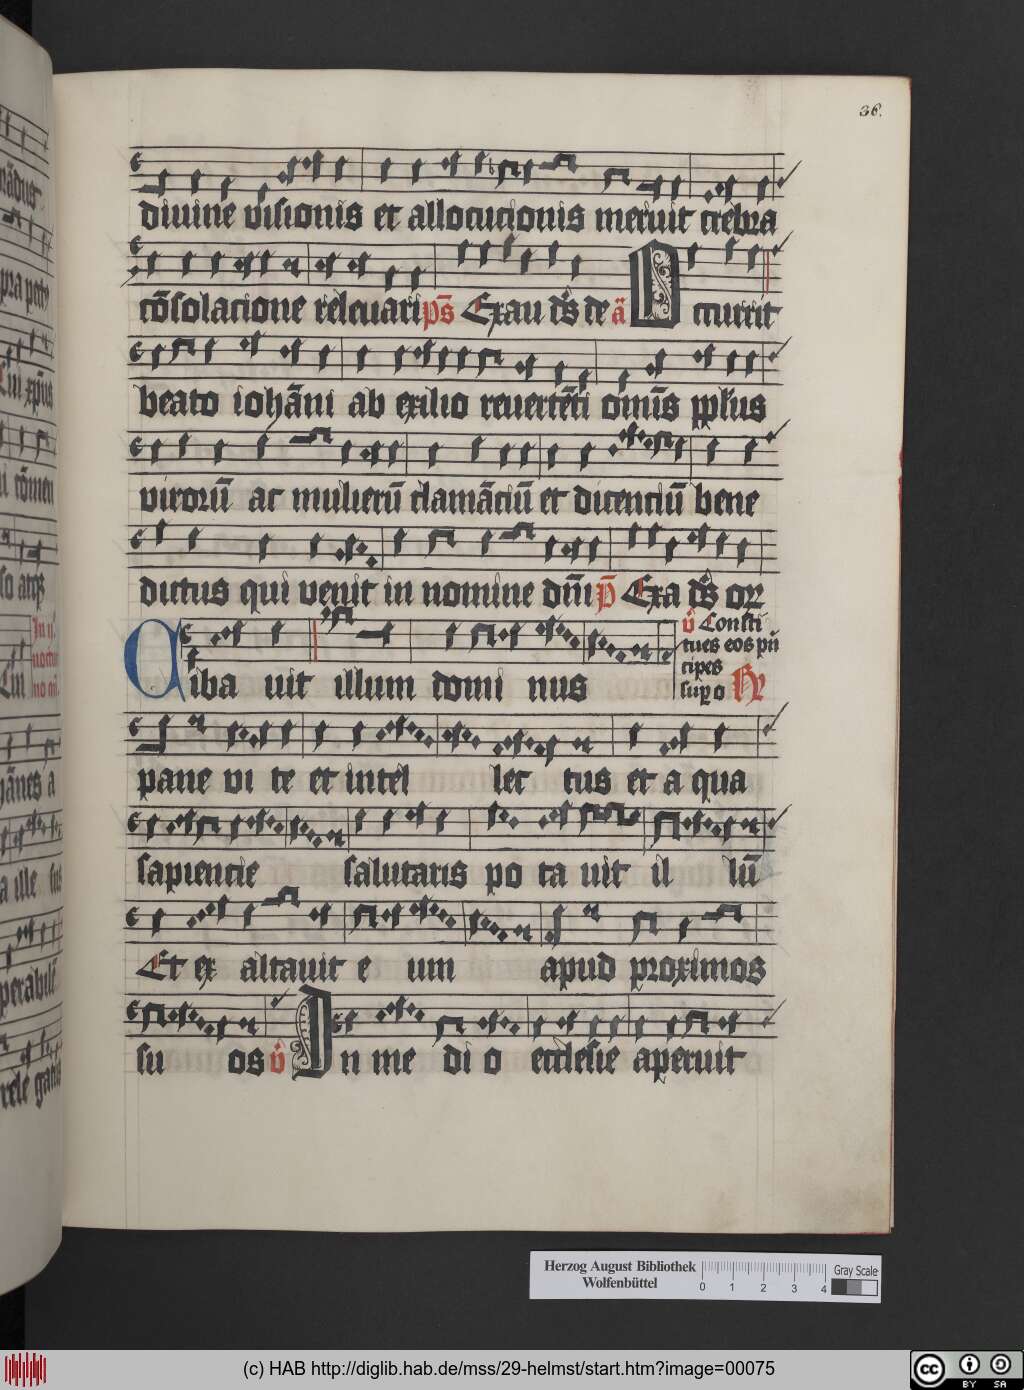 36.
diuine visionis et allocucionis meruit crebra
cōsolacione releuari ps̄ Exau ds̄ de ā Occurrit
beato iohāni ab exilio reuertēti om̄is pplūs
virorū ac mulierū clamāciū et dicenciū bene
dictus qui venit in nomine dn̄i p̄ Exa ds̄ or
Ciba uit illum domi nus
v̄ Consti
tues eos pn̄
cipes
sup o R
pane vi te et intel lec tus et a qua
sapiencie salutaris po ta uit il lū
Et ex altauit e um apud proximos
su os v̄ In me di o ecclesie aperuit
Herzog August Bibliothek
Wolfenbüttel
0 1 2 3 4
Gray Scale
(c) HAB http://diglib.hab.de/mss/29-helmst/start.htm?image=00075
cc BY SA